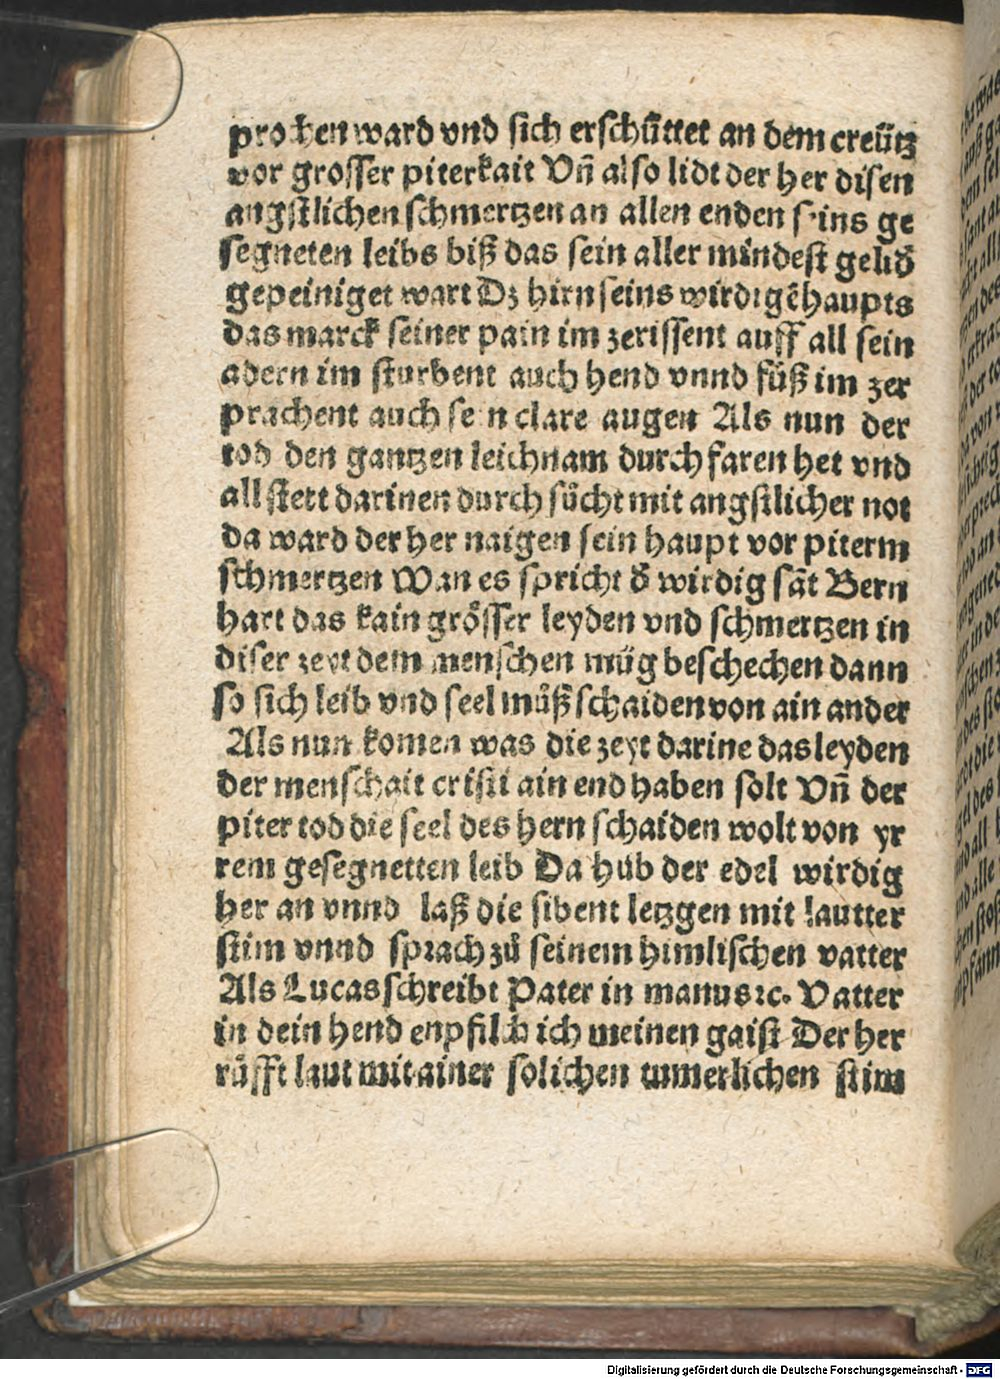 prochen ward vnd sich erschüttet an dem creütz
vor grosser piterkait Vn̄ also lidt der her disen
angstlichen schmertzen an allen enden seins ge
segneten leibs biß das sein aller mindest gelid
gepeiniget wart Dz hirn seins wirdigē haupts
das marck seiner pain im zerissent auff all sein
adern im sturbent auch hend vnnd füß im zer
prachent auch sein clare augen Als nun der
tod den gantzen leichnam durch faren het vnd
all stett darinen durch sücht mit angstlicher not
da ward der her naigen sein haupt vor piterm
schmertzen Wan es spricht d̄ wirdig sāt Bern
hart das kain grösser leyden vnd schmertzen in
diser zeyt dem menschen müg beschechen dann
so sich leib vnd seel müß schaiden von ain ander
Als nun komen was die zeyt darine das leyden
der menschait cristi ain end haben solt Vn̄ der
piter tod die seel des hern schaiden wolt von yr
rem gesegnetten leib Da hüb der edel wirdig
her an vnnd laß die sibent letzgen mit lautter
stim vnnd sprach zů seinem himlischen vatter
Als Lucas schreibt Pater in manus ꝛc. Vatter
in dein hend enpfilch ich meinen gaist Der her
růfft laut mit ainer solichen iamerlichen stim
Digitalisierung gefördert durch die Deutsche Forschungsgemeinschaft - DFG